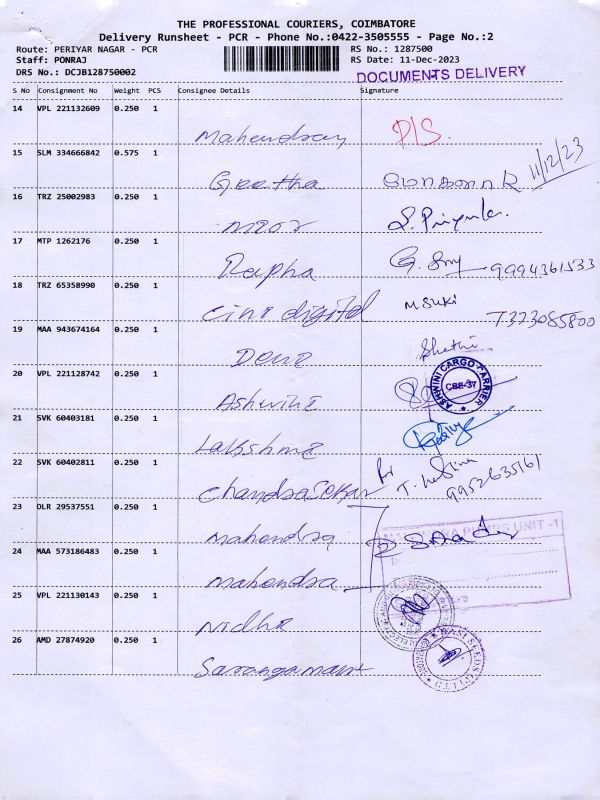 THE PROFESSIONAL COURIERS, COIMBATORE
Delivery Runsheet - PCR - Phone No.:0422-3505555 - Page No.:2
Route: PERIYAR NAGAR - PCR RS No.: 1287500
Staff: PONRAJ RS Date: 11-Dec-2023
DRS No.: DCJB128750002 DOCUMENTS DELIVERY
S No Consignment No Weight PCS Consignee Details Signature
14 VPL 221132609 0.250 1
P/S.
15 SLM 334666842 0.575 1
11/12/23
Geetha
16 TRZ 25002983 0.250 1
S. Priyanka.
17 MTP 1262176 0.250 1
Rapha 9994361533
18 TRZ 65358990 0.250 1
Cini digital M SUKI 7373085800
19 MAA 943674164 0.250 1
Shethi
20 VPL 221128742 0.250 1
ASHWINI CARGO CARRIER CBE-37
Ashwini
21 SVK 60403181 0.250 1
Lakshmi
22 SVK 60402811 0.250 1
for
Chandrasekar 9952635161
23 DLR 29537551 0.250 1
UNIT -1
Mahendra
24 MAA 573186483 0.250 1
Mahendra
25 VPL 221130143 0.250 1
Nidhi
26 AMD 27874920 0.250 1